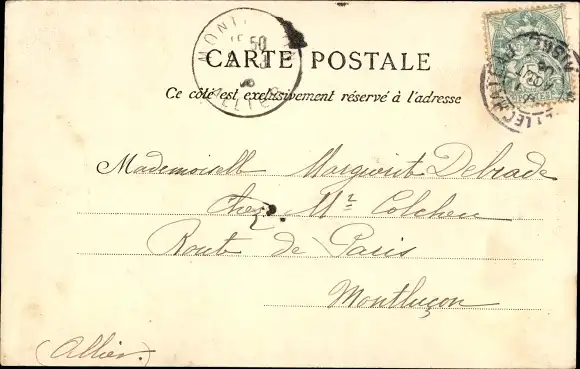 CARTE POSTALE
Ce côté est exclusivement réservé à l'adresse
Mademoiselle Margurit Debrade
Chez Mr Colcheu
Route de Paris
Montluçon
(Allier.)